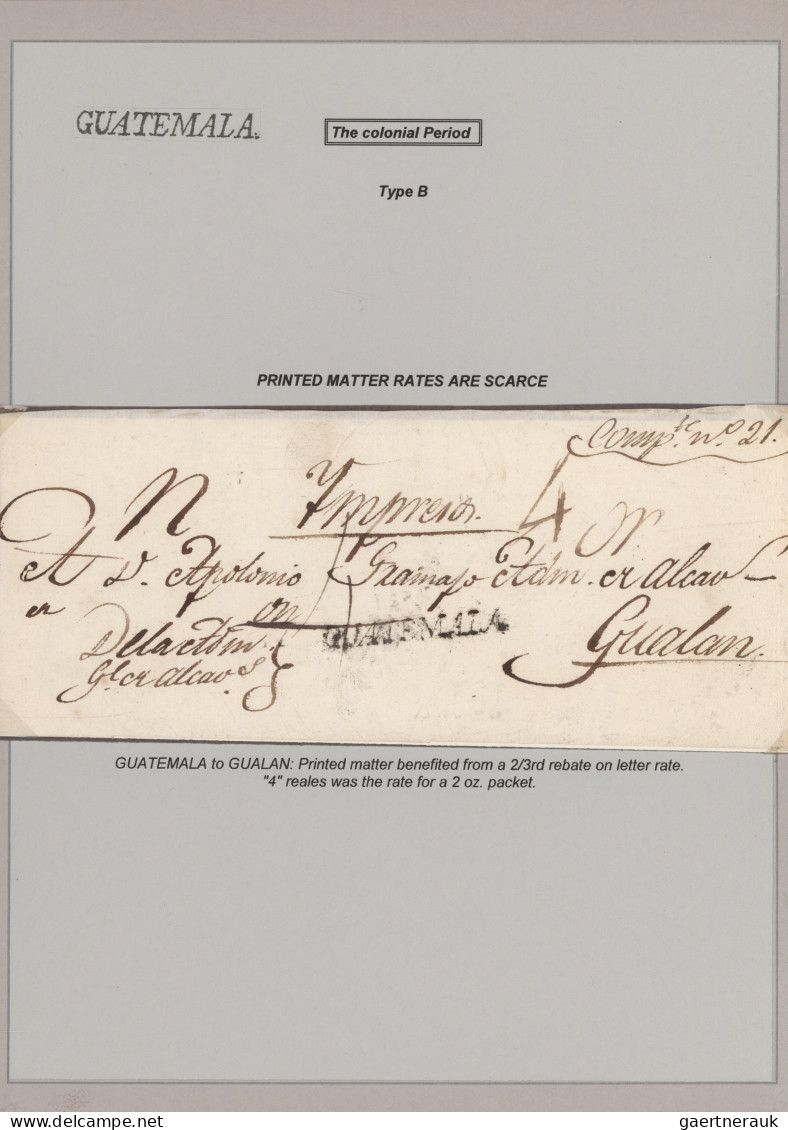 GUATEMALA.
The colonial Period
Type B
PRINTED MATTER RATES ARE SCARCE
Comp.te n.o 21.
N Ympresos. 4 or
A D. Apolonio Gramajo Adm. Alcav
on
GUATEMALA.
De la Adm.
Gualan.
G.l Alcav.s
GUATEMALA to GUALAN: Printed matter benefited from a 2/3rd rebate on letter rate.
"4" reales was the rate for a 2 oz. packet.
www.delcampe.net
gaertnerauk